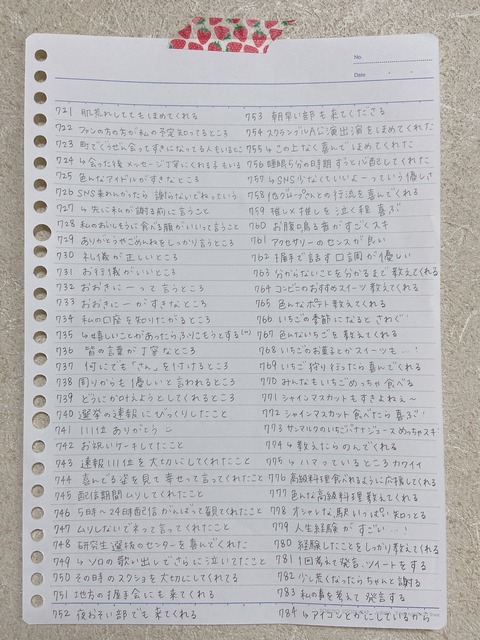 No
Date
721 肌荒れしててもほめてくれる
722 ファンの方の方が私の予定知ってるところ
723 町でぐうぜん会ってすきになってる人もいるところ
724 ↳会った後メッセージ丁寧にくれる子もいる
725 色んなアイドルがすきなところ
726 SNS来れんかったら謝らないでねっていう
727 ↳先に私が謝る前に言うこと
728 私のおいしそうに食べる顔がいいって言うこと
729 ありがとうやごめんねをしっかり言うところ
730 礼儀が正しいところ
731 お行儀がいいところ
732 おおきにーって言うところ
733 おおきにーがすきなところ
734 私の口座を知りたがるところ
735 ↳嬉しいことがあったらふりこもうとする(笑)
736 皆の言葉が丁寧なところ
737 何にでも「さん」を付けるところ
738 周りからも優しいと言われるところ
739 どうにか口角上げようとしてくれるところ
740 選挙の速報にびっくりしたこと
741 111位ありがとう
742 お祝いケーキしてたこと
743 速報111位を大切にしてくれたこと
744 喜んでる姿を見て幸せって言ってくれたこと
745 配信期間ムリしてくれたこと
746 5時〜24時配信がんばって観てくれたこと
747 ムリしないでネって言ってくれたこと
748 研究生選抜のセンターを喜んでくれた
749 ↳ソロの歌い出しでさらに泣いてたこと
750 その時のスクショを大切にしてくれてる
751 地方の握手会にも来てくれる
752 夜おそい部でも来てくれる
753 朝早い部も来てくださる
754 スクランブルA公演出演をほめてくれた
755 ↳この上なく喜んでほめてくれた
756 睡眠5分の時期ずっと心配としてくれた
757 ↳SNS少なくていいよーっていう優しさ
758 他グループさんとの行流を喜んでくれる
759 推し×推しを泣く程喜ぶ
760 お腹鳴る音がすごくスキ
761 アクセサリーのセンスが良い
762 握手で話す口調が優しい
763 分からないことを分かるまで教えてくれる
764 コンビニのおすすめスイーツ教えてくれる
765 色んなポテト教えてくれる
766 いちごの季節になるとさわぐ!
767 色んないちごを教えてくれる
768 いちごのお菓子とかスイーツも…!
769 いちご狩り行ったら喜んでくれる
770 みんなもいちごめっちゃ食べる
771 シャインマスカットもすきよねぇ〜
772 シャインマスカット食べたら喜ぶ!
773 サンマルクのいちごバナナジュースめっちゃスキ
774 ↳教えたらのんでくれる
775 ↳ハマっているところカワイイ
776 高級料理食べれるように応援してくれる
777 色んな高級料理教えてくれる
778 オシャレな駅いっぱい知っとる
779 人生経験がすごい…!
780 経験したことをしっかり教えてくれる
781 1回考えて発言、ツイートをする
782 少し荒くなったらちゃんと謝る
783 私の事を考えて発言する
784 ↳アイコンとかにしているから